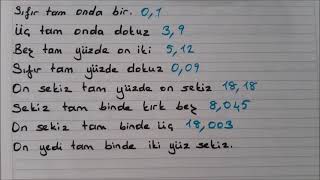 Sıfır tam onda bir. 0,1
Üç tam onda dokuz 3,9
Beş tam yüzde on iki 5,12
Sıfır tam yüzde dokuz 0,09
On sekiz tam yüzde on sekiz 18,18
Sekiz tam binde kırk beş 8,045
On sekiz tam binde üç 18,003
On yedi tam binde iki yüz sekiz.